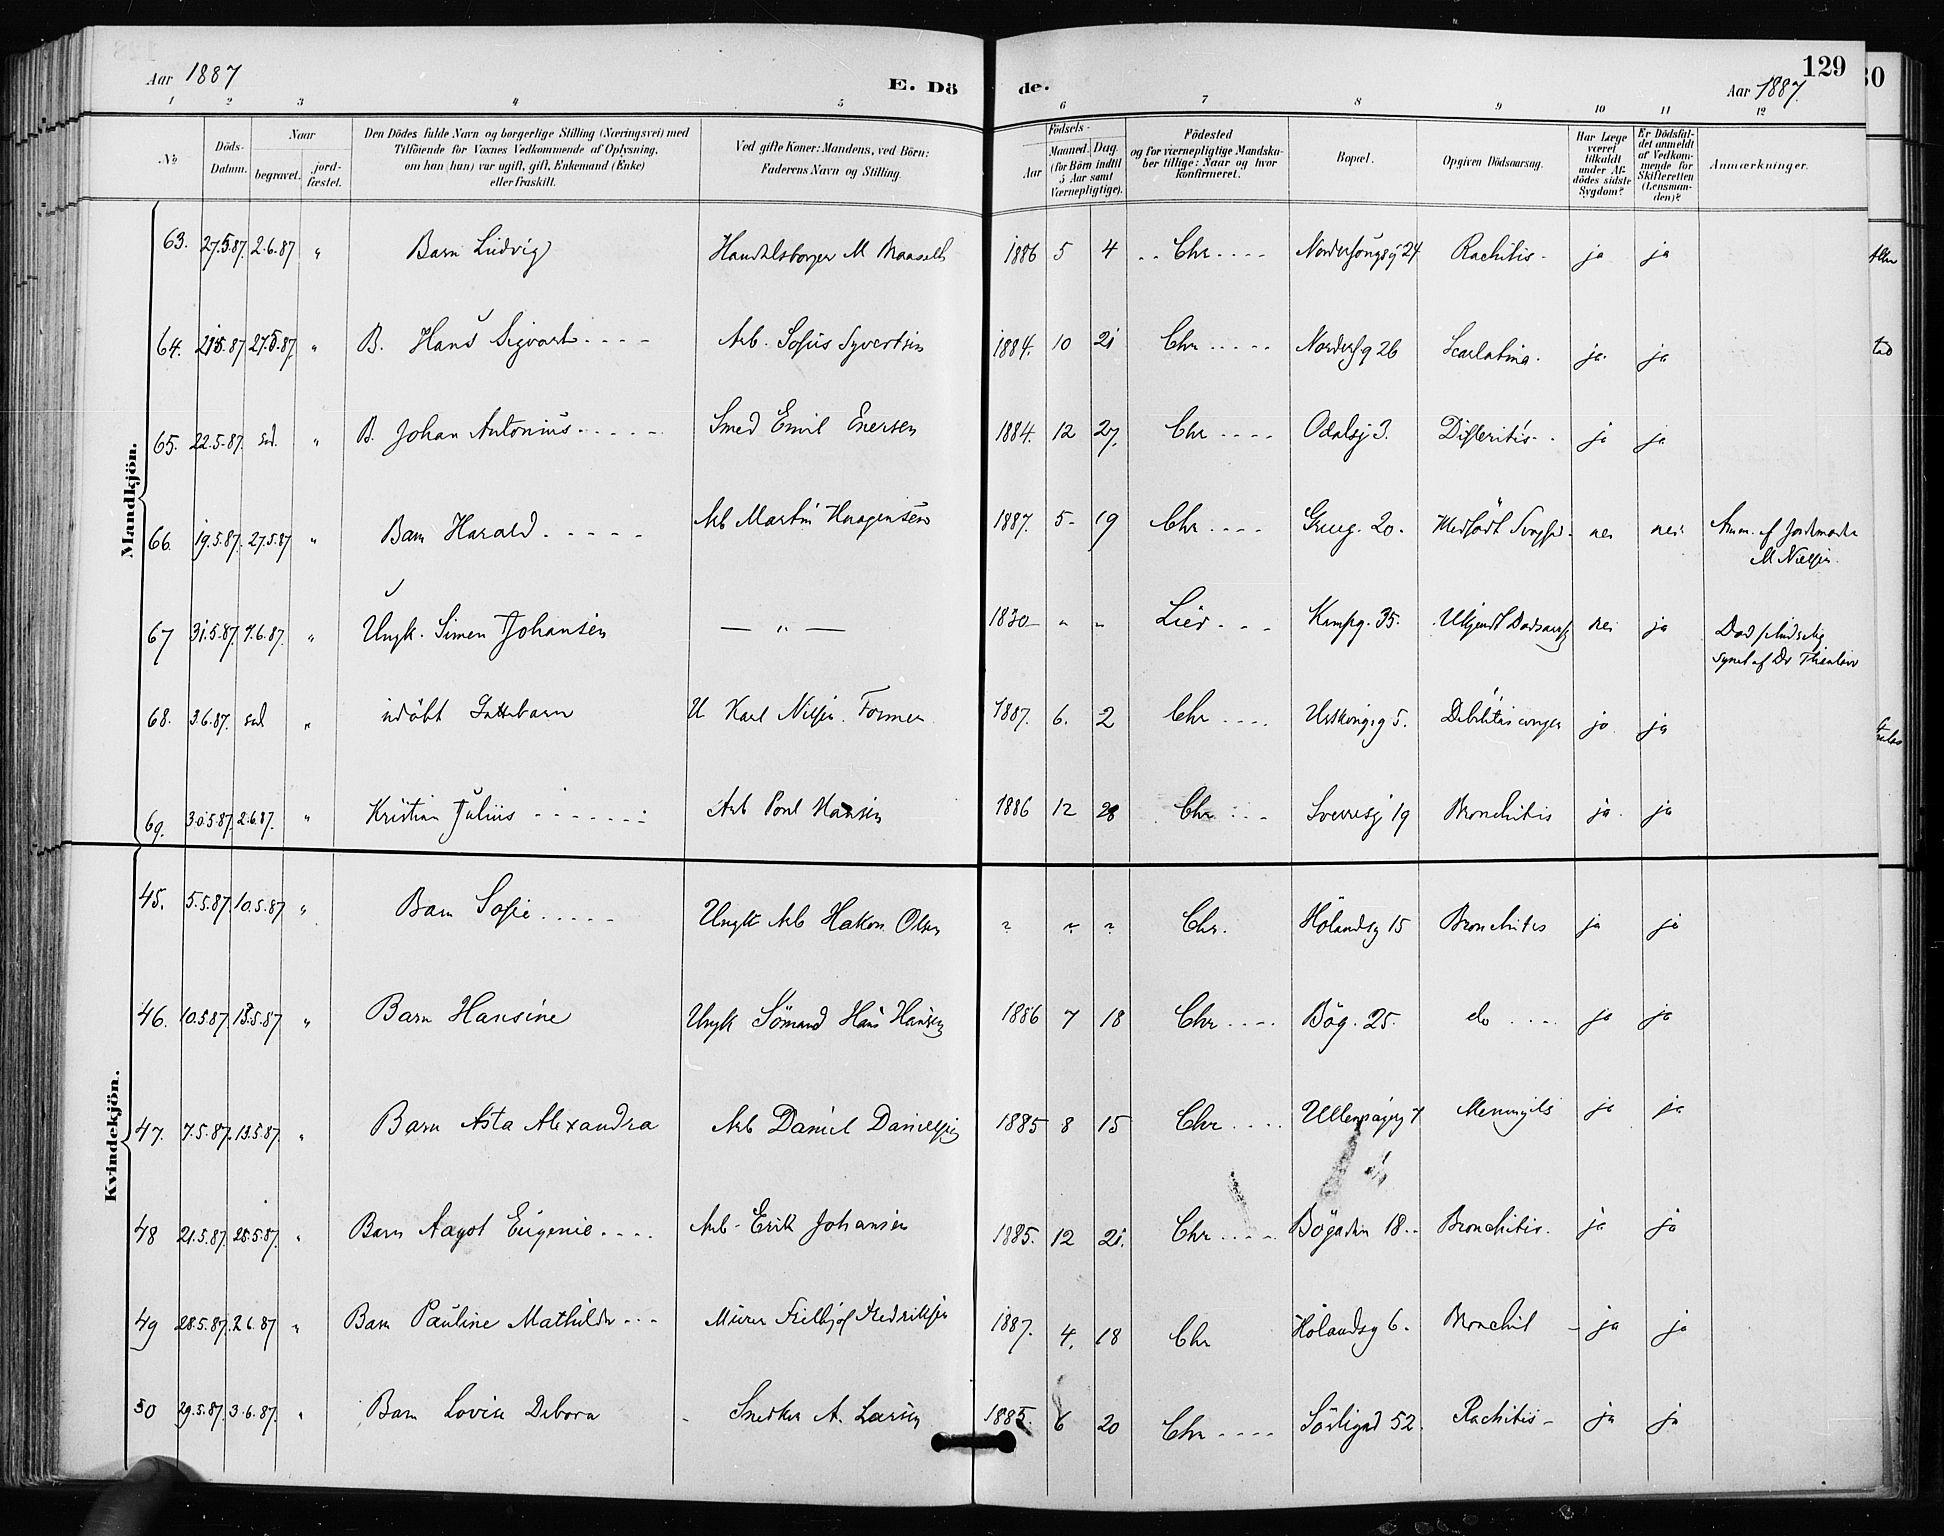 Aar 1887
E. Dö
de.
129
Aar 1887.
1 2 3 4 5 6 7 8 9 10 11 12
№
Döds-
Datum.
Naar
begravet.
jord-
fæstet.
Den Dödes fulde Navn og borgerlige Stilling (Næringsvei) med
Tilföiende for Voxnes Vedkommende af Oplysning,
om han (hun) var ugift, gift, Enkemand (Enke)
eller fraskilt.
Ved gifte Koner: Mandens, ved Börn:
Faderens Navn og Stilling.
Födsels-
Aar
Maaned. Dag
(for Börn indtil
5 Aar samt
Værnepligtige).
Födested
og for værnepligtige Mandsku-
ber tillige: Naar og hvor
konfirmeret.
Bopæl.
Opgiven Dödsaarsag.
Har Læge
været
tilkaldt
under Af-
dödes sidste
Sygdom?
Er Dödsfal-
det anmeldt
af Vedkom-
mende for
Skifteretten
(Lensman-
den)?
Anmærkninger.
Mandkjön.
63. 27.5.87. 2.6.87 " Barn Ludvig Handelsborger M 1886 5 4 Chr Rachitis ja ja
64. 21.5.87 27.5.87 " B. Hans Sigvart Arb. Sofus Syvertsen 1884. 10 21 Chr 26 Scarlatina. ja ja
65. 22.5.87. sad. " B. Johan Antonius Smed Emil Enersen 1884. 12 27. Chr Odalsg 3. Difteritis ja ja
66 19.5.87. 27.5.87 " Barn Harald Arb Martin Haagensen 1887. 5 19 Chr 20. Medfødt nei nei Anm. af Jordmoder
M Nielsen.
67 31.5.87. 7.6.87. " Ungk. Simen Johansen — " — 1830 " " Lier Kampg. 35. Ubekjendt nei ja Død pludselig
synet af Dr
68. 3.6.87. sad " udøbt Guttebarn U Karl Nilsen. Former 1887. 6. 2 Chr Urskougsg 5. Debilitas congen ja ja
69. 30.5.87. 2.6.87. " Kristian Julius Arb Poul Hansen 1886 12 28 Chr Sverresg 19 Bronchitis ja ja
Kvindekjön.
45. 5.5.87. 10.5.87 " Barn Sofie Ungk Arb Hakon Olsen " " " Chr. Hölandsg 15 Bronchitis ja ja
46. 10.5.87 13.5.87 " Barn Hansine Ungk Sömand Hans Hansen 1886 7 18 Chr Bög. 25. do ja ja
47. 7.5.87. 13.5.87 " Barn Asta Alexandra Arb Daniel Danielsen 1885 8 15 Chr 7 Meningits ja ja
48 21.5.87. 28.5.87. " Barn Aagot Eugenie Arb. Erik Johansen 1885. 12 21. Chr Bögaden 18 Bronchitis. ja ja
49 28.5.87. 2.6.87 " Barn Pauline Mathilde Murer Fredriksen 1887. 4. 18 Chr Hölandsg 6. Bronchit ja ja
50 29.5.87. 3.6.87. " Barn Lovise Debora Snedker A. Larsen 1885. 6 20 Chr 52. Rachitis ja ja